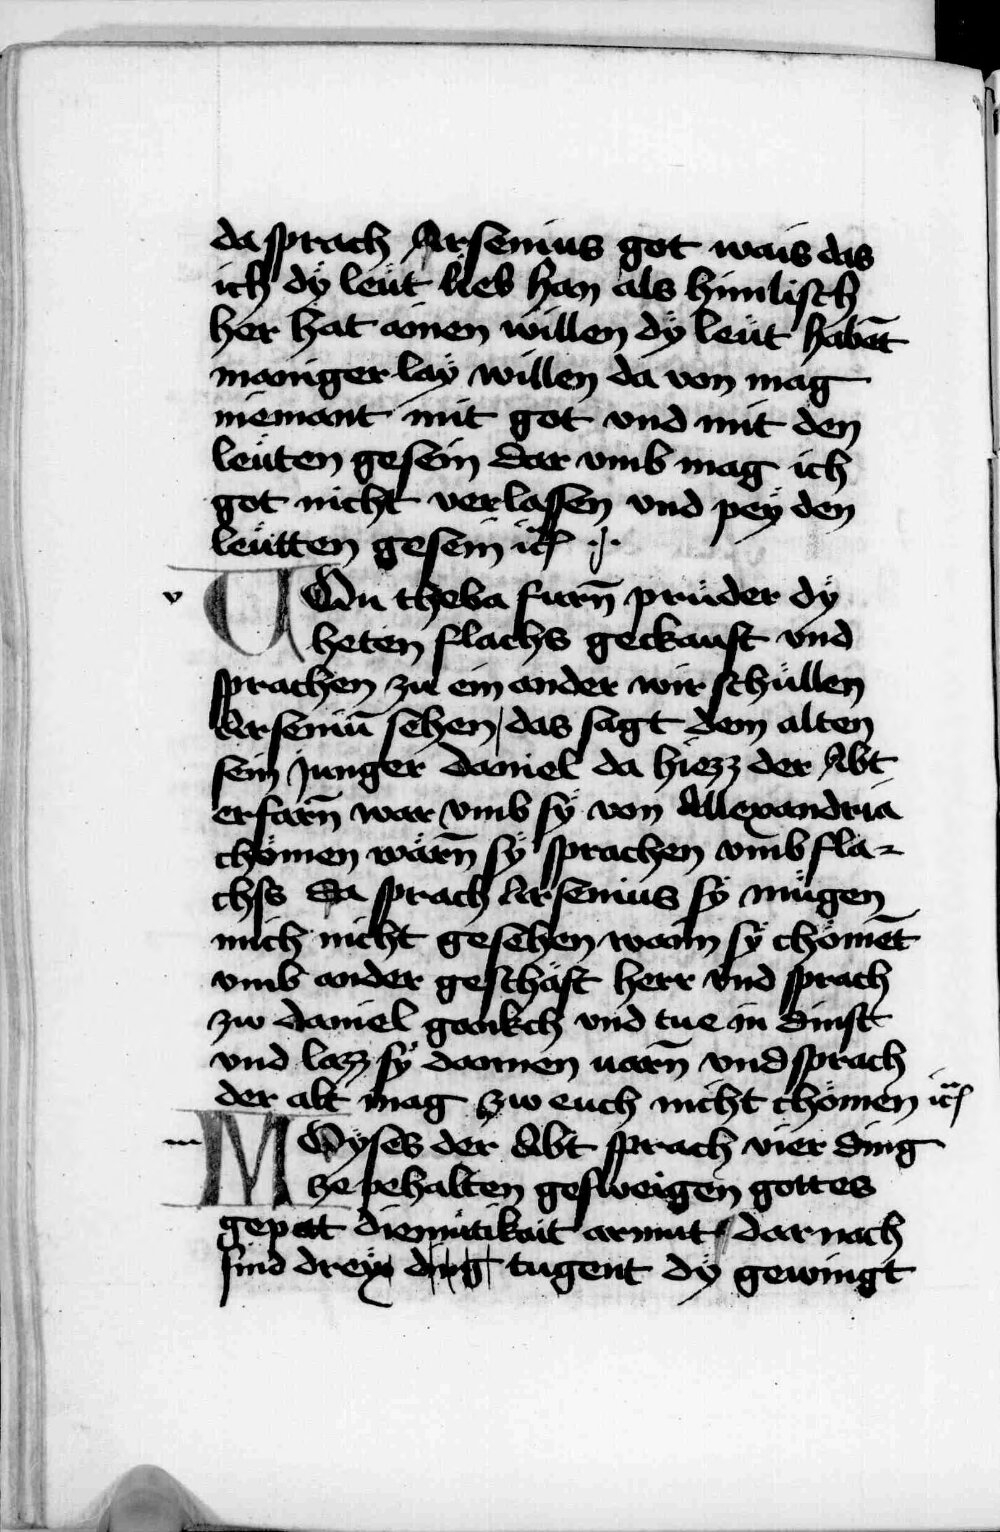 da sprach Arsenius got wais das
ich dÿ leüt lieb han als himlisch
her hat ainen willen dÿ leüt habēt
maniger laÿ willen da von mag
niemant mit got vnd mit den
leüten gesein dar vmb mag ich
got nicht verlassen vnd peÿ den
leütten gesein
v VOn theba furn̄ prüder dÿ
heten flachs gekauft vnd
sprachen zu ein ander wir schüllen
Arseniū sehen das sagt dem alten
sein junger daniel da hiezz der Abt
erfarn̄ war vmb sÿ von Allexandria
chömen wärn̄ sÿ sprachen vmb fla-
chss Da sprach Arsenius sÿ mügen
mich nicht gesehen wann sÿ chömēt
vmb ander geschäft herr vnd sprach
zw daniel gankch vnd tue in dinst
vnd lazz sÿ dannen uarn̄ vnd sprach
der alt mag zw euch nicht chömen
MOÿses der Abt sprach vier ding
ze pehalten gesweigen gottes
gepott diemütikait armut dar nach
sind dreÿ ding tugent dÿ gewingt